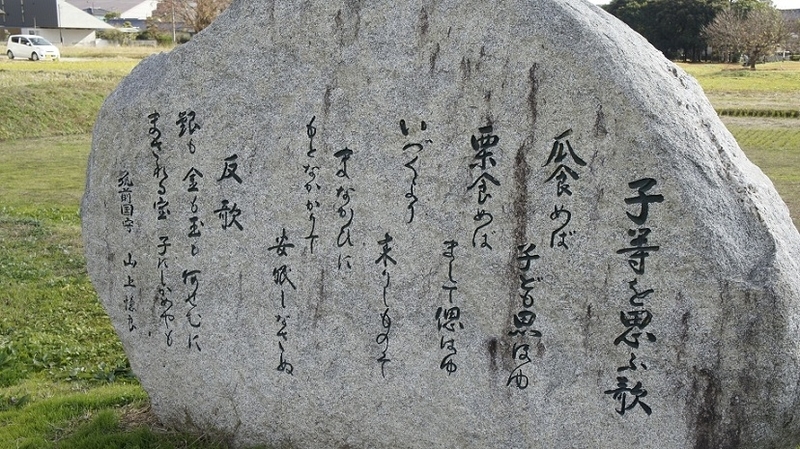 子等を思ふ歌
瓜食めば
子ども思ほゆ
栗食めば
まして偲はゆ
いづくより
来りしものそ
まなかひに
もとなかかりて
安眠しなさぬ
反歌
銀も 金も玉も 何せむに
まされる宝 子にしかめやも
筑前国守 山上憶良